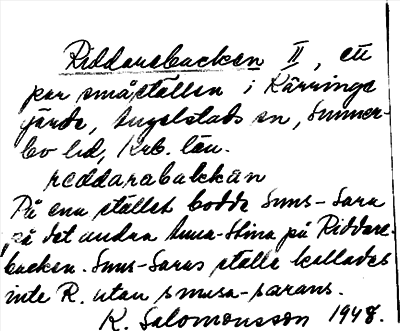 Riddarebacken II, ett
par småställen i Kärringe
gärde, Angelstads sn, Sunner-
bo hd, Krb. län.
reddarabakkän
På ena stället bodde Suns-Sara
på det andra Anna-Stina på Riddare-
backen. Suns-Saras ställe kallades
inte R. utan smusa-sarans.
K. Salomonsson 1948.